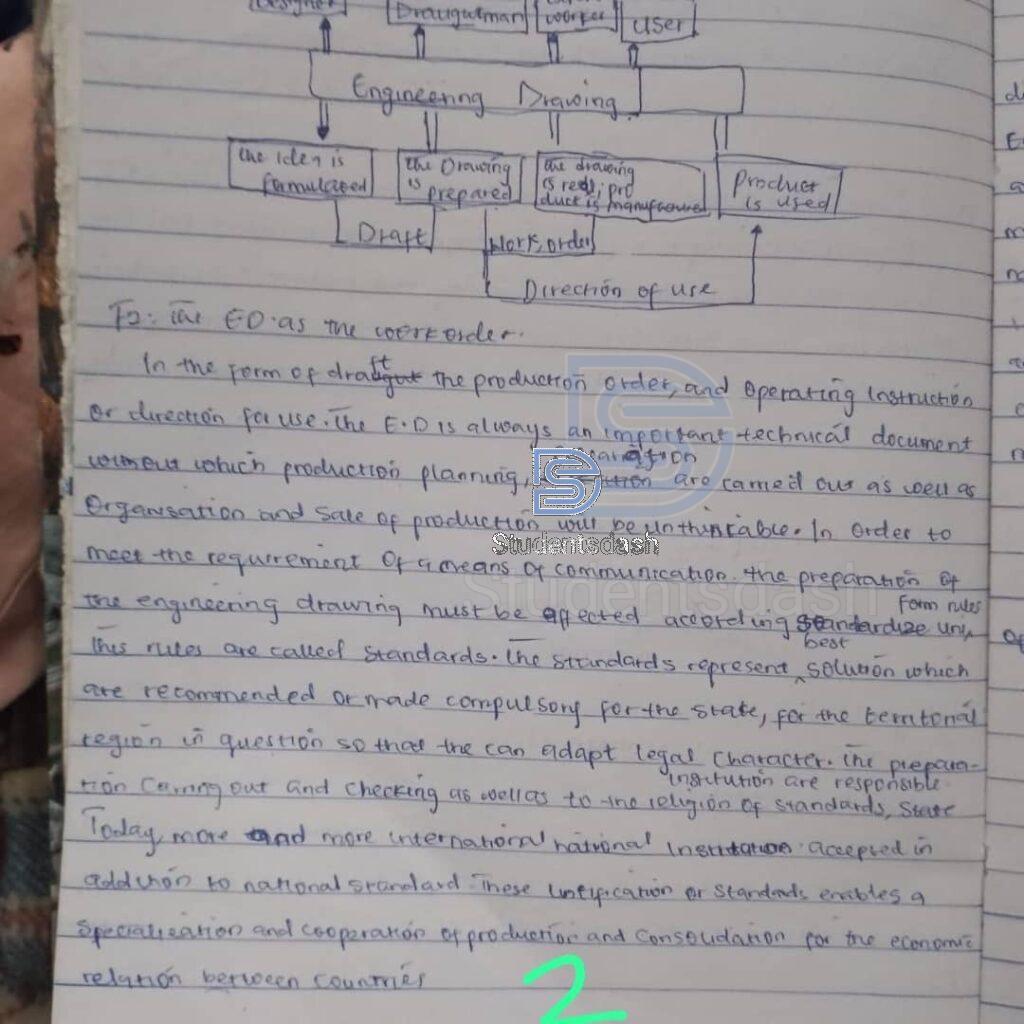 Designer
Draugutman
worker
user
Engineering Drawing
the iden is
formulated
the Drawing
is
prepared
the drawing
is red, pro
duct is manufactured
Product
is used
Draft
Work order
Direction of use
F2: The E.D. as the work order.
In the form of draft the production order, and operating instruction
or direction for use. The E.D is always an important technical document
without which production planning, are carried out as well as
Organisation and sale of production will be unthinkable. In order to
meet the requirement of a means of communication. the preparation of
the engineering drawing must be affected according standardize uni form rules
This rules are called standards. The standards represent best solution which
are recommended or made compulsory for the state, for the territorial
region in question so that the can adapt legal character. The prepara-
tion Carring out and checking as well as to the religion of standards, State institution are responsible
Today, more and more international national Institution accepted in
addition to national standard. These unification or standards enables a
specialization and cooperation of production and consolidation for the economic
relation between countries
2
Studentsdash
Studentsdash